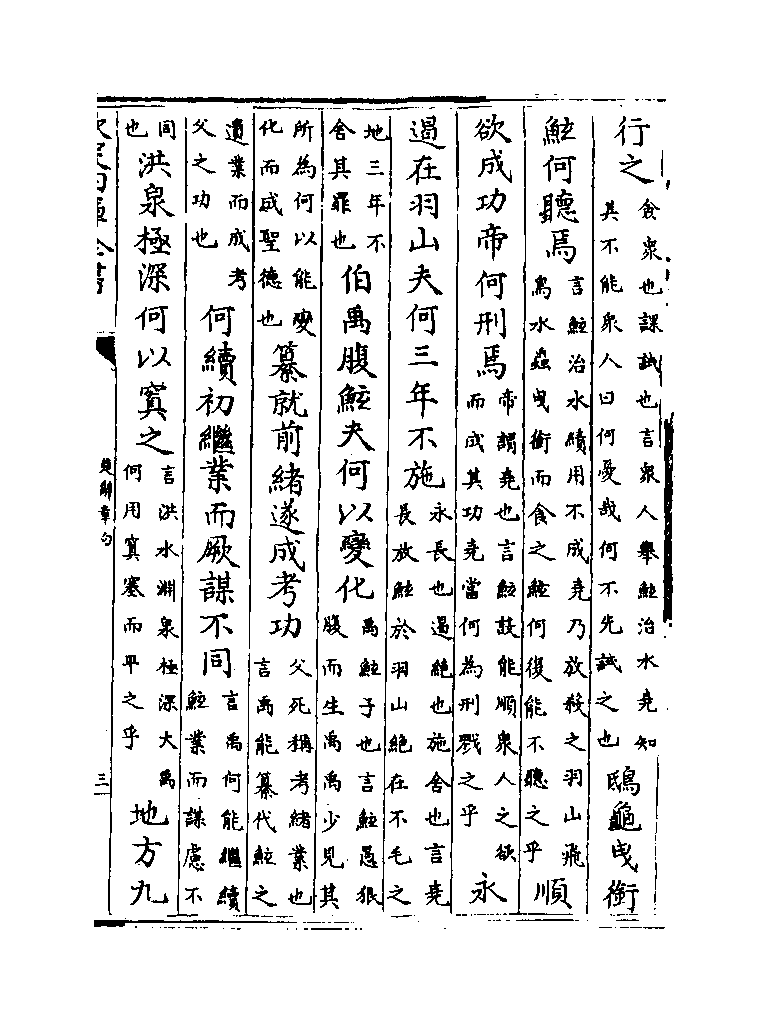 行之僉衆也課試也言衆人舉鮌治水堯知其不能衆人曰何憂哉何不先試之也鴟龜曳銜
鮌何聽焉言鮌治水績用不成堯乃放殺之羽山飛鳥水蟲曳銜而食之鮌何復能不聽之乎順
欲成功帝何刑焉帝謂堯也言鮌設能順衆人之欲而成其功堯當何為刑戮之乎永
遏在羽山夫何三年不施永長也遏絶也施舍也言堯長放鮌於羽山絶在不毛之
地三年不舍其罪也伯禹腹鮌夫何以變化禹鮌子也言鮌愚狠腹而生禹禹少見其
所為何以能變化而成聖德也纂就前緒遂成考功父死稱考緒業也言禹能纂代鮌之
遺業而成考父之功也何續初繼業而厥謀不同言禹何能繼續鮌業而謀慮不
同也洪泉極深何以寘之言洪水淵泉極深大禹何用寘塞而平之乎地方九
欽定四庫全書
楚辭章句
三